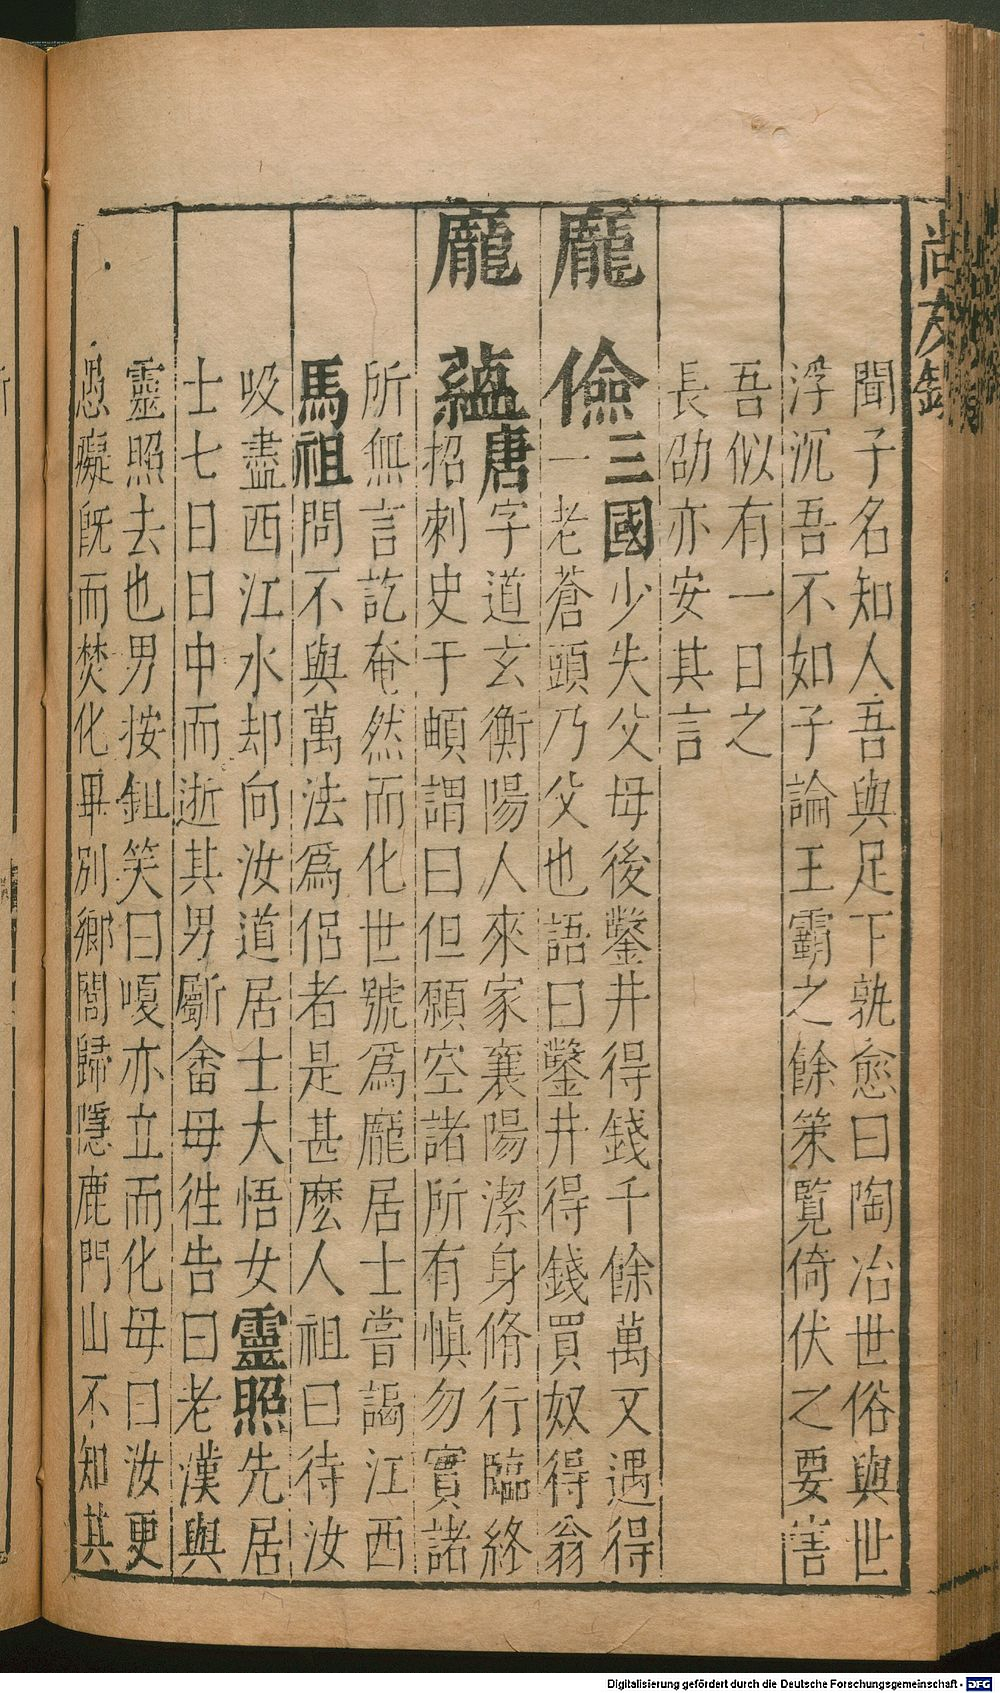 尚友錄
聞子名知人吾與足下孰愈曰陶冶世俗與世
浮沉吾不如子論王霸之餘策覽倚伏之要害
吾似有一日之
長劭亦安其言
龐儉三國少失父母後鑿井得錢千餘萬又遇得
一老蒼頭乃父也語曰鑿井得錢買奴得翁
龐蘊唐字道玄衡陽人來家襄陽潔身脩行臨終
招刺史于頔謂曰但願空諸所有愼勿實諸
所無言訖奄然而化世號爲龐居士嘗謁江西
馬祖問不與萬法爲侶者是甚麽人祖曰待汝
吸盡西江水却向汝道居士大悟女靈照先居
士七日日中而逝其男斸畬母徃告曰老漢與
靈照去也男按鉏笑曰嗄亦立而化母曰汝更
愚癡旣而焚化畢別鄉閭歸隱鹿門山不知其
Digitalisierung gefördert durch die Deutsche Forschungsgemeinschaft - DFG